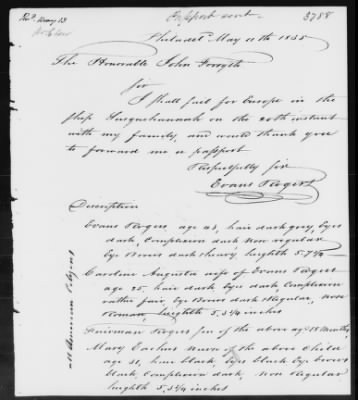 Passport sent
3788
Philadel. May 11th 1835
The Honorable John Forsyth
Sir
I shall sail for Europe in the
Ship Susquehannah on the 20th instant
with my family, and would thank you
to forward me a passport
Respectfully Sir
Evans Rogers
Description
Evans Rogers age 43, hair dark grey, Eyes
dark, Complexion dark Nose regular
Eye Brows dark & heavy heighth 5.7 3/4
Caroline Augusta wife of Evans Rogers
age 25, hair dark Eyes dark, Complexion
rather fair, Eye Brows dark & regular, nose
Roman, heighth 5, 3 1/4 inches
Fairman Rogers son of the above age 18 Months
Mary Nurse of the above Child
age 31, hair black, Eyes black Eye brows
black, Complexion dark, Nose Regular
heighth 5, 3 1/4 inches
all American Citizens